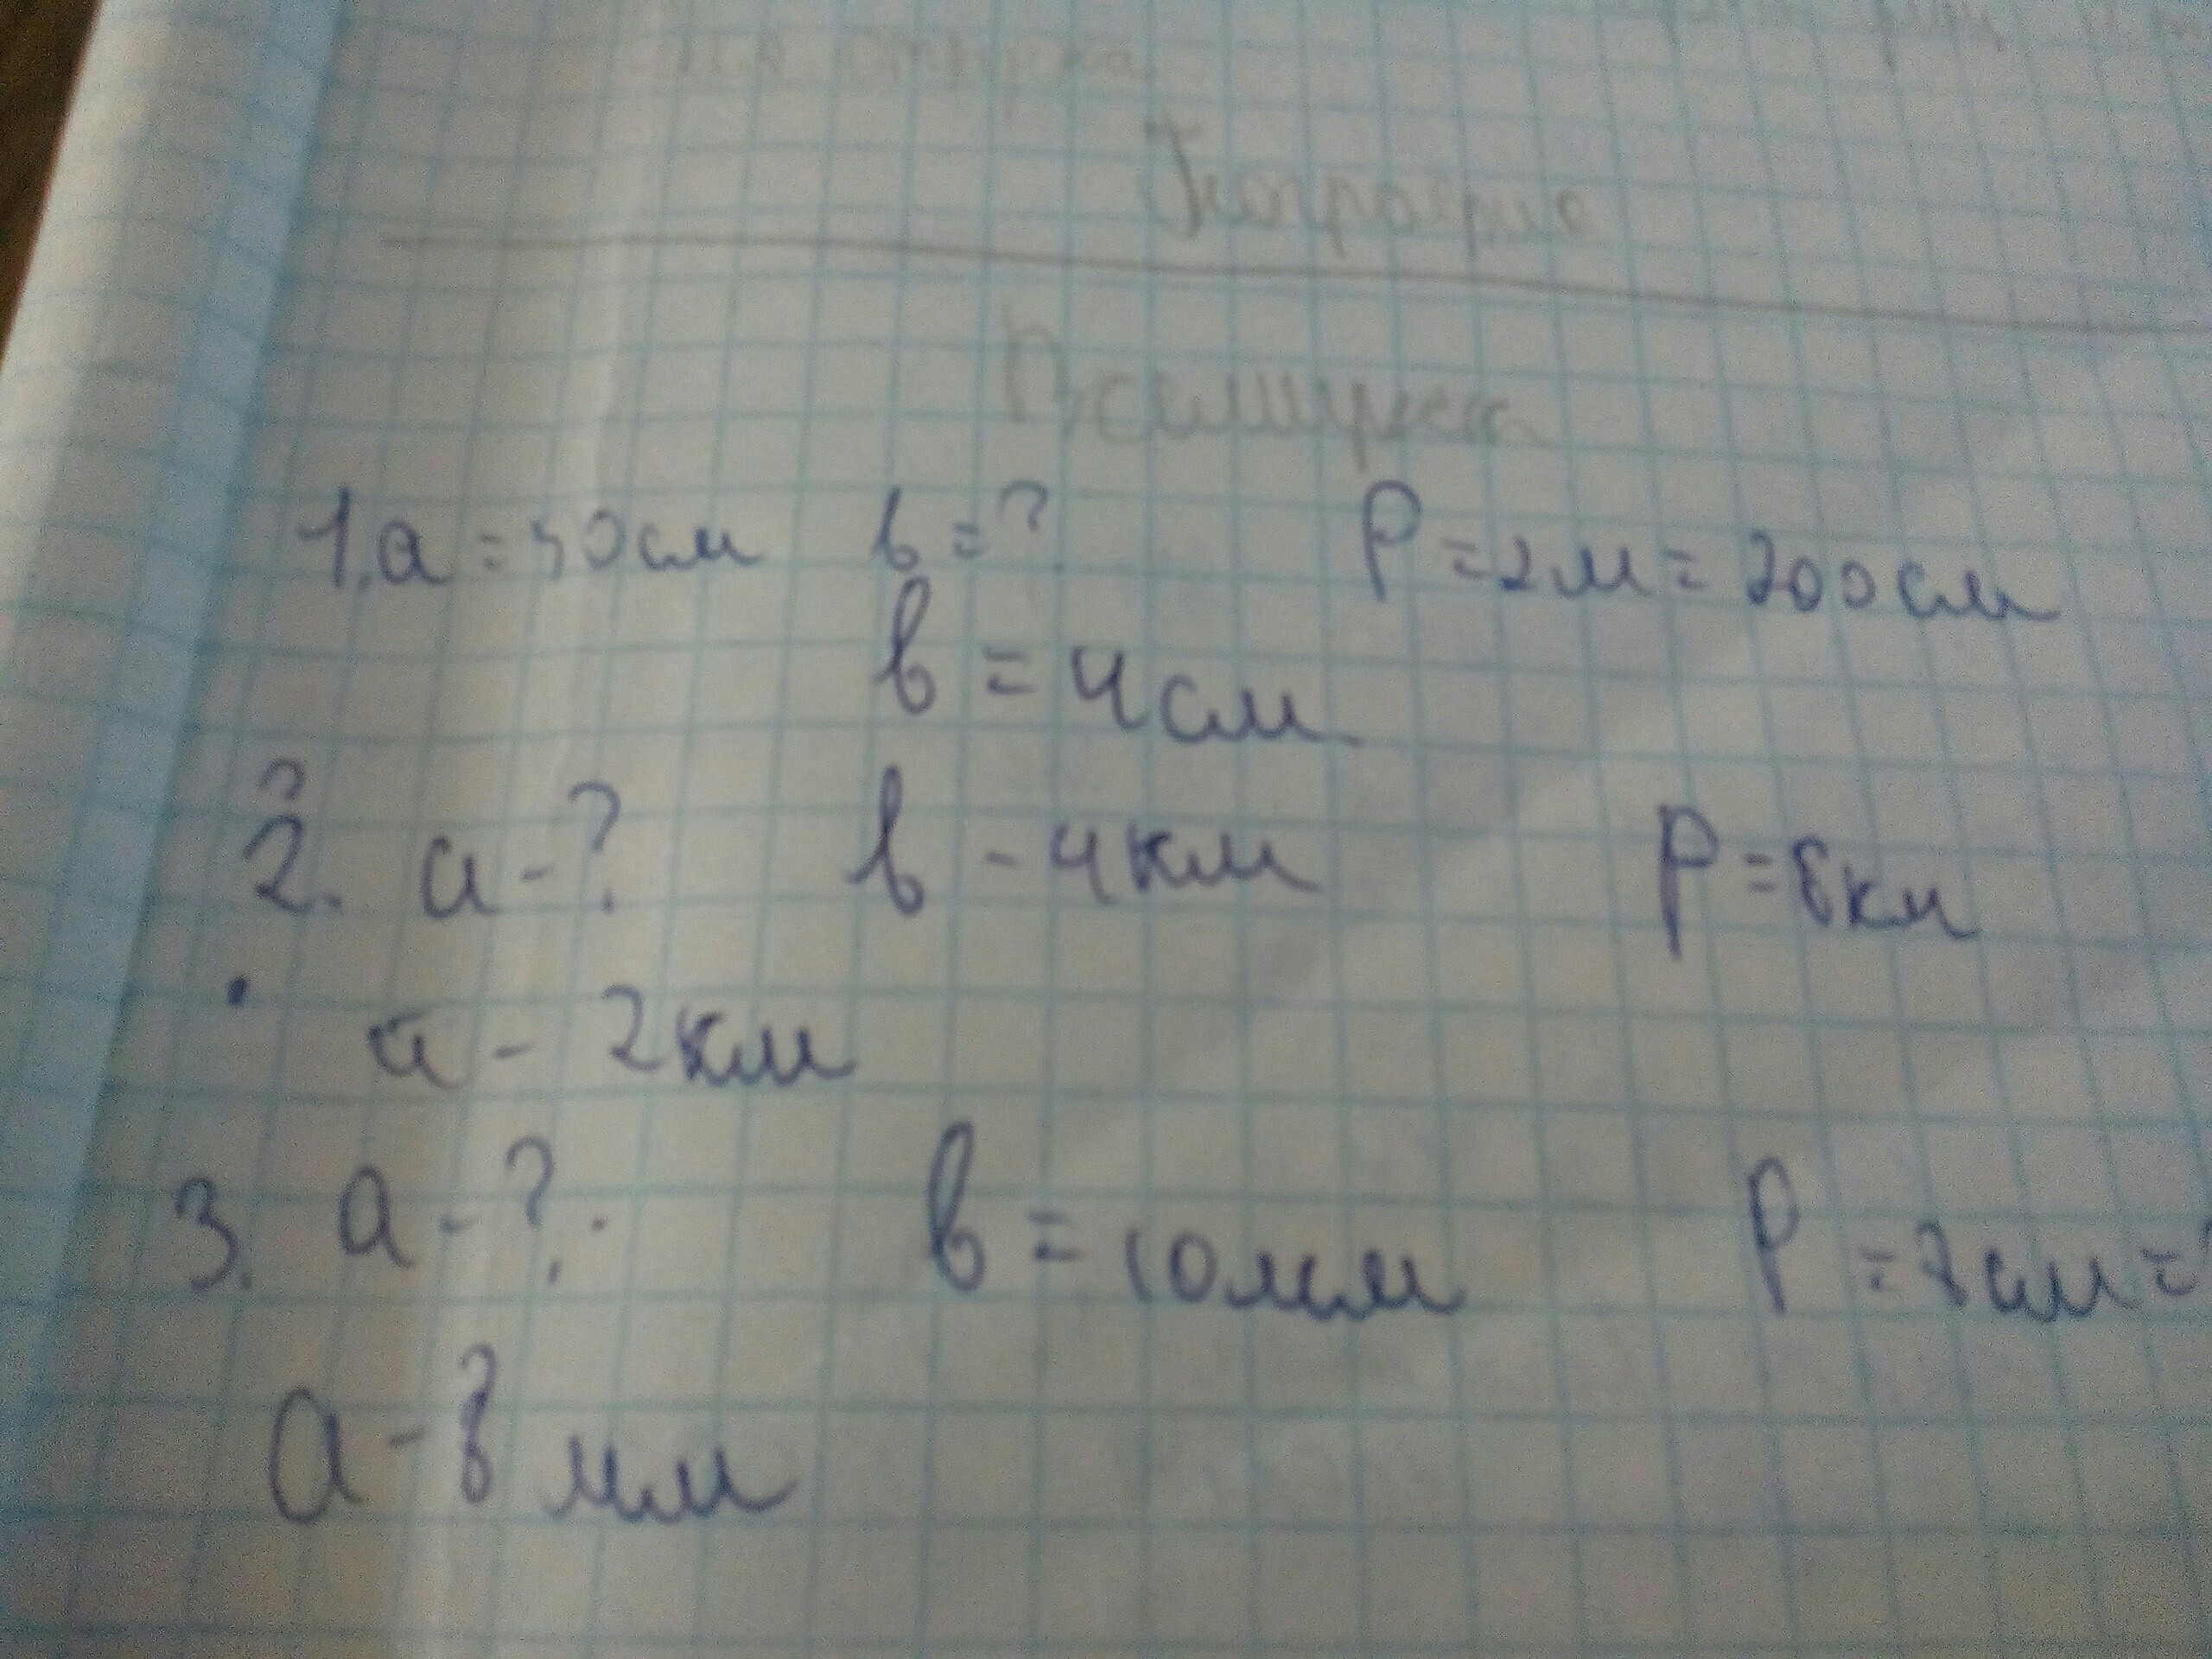 1. а = 50см в = ? Р = 2м = 200см
в = 4см
2. а - ? в - 4км Р = 8км
а - 2км
3. а - ? в = 10мм Р = 8см =
а - 8 мм